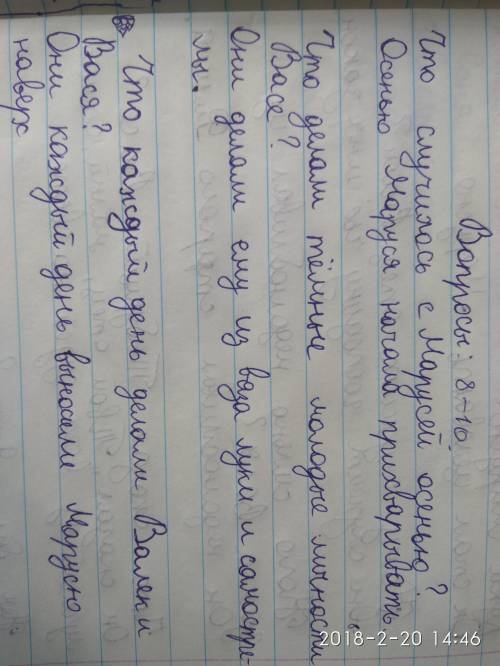 Вопросы: 8-10
Что случилось с Марусей осенью?
Осенью Маруся начала прихварывать
Что делали тёмные молодые личности
Васе?
Они делали ему из воза луки и самостре-
лы.
Что каждый день делали Валек и
Вася?
Они каждый день выносели Марусю
наверх
2018-2-20 14:46